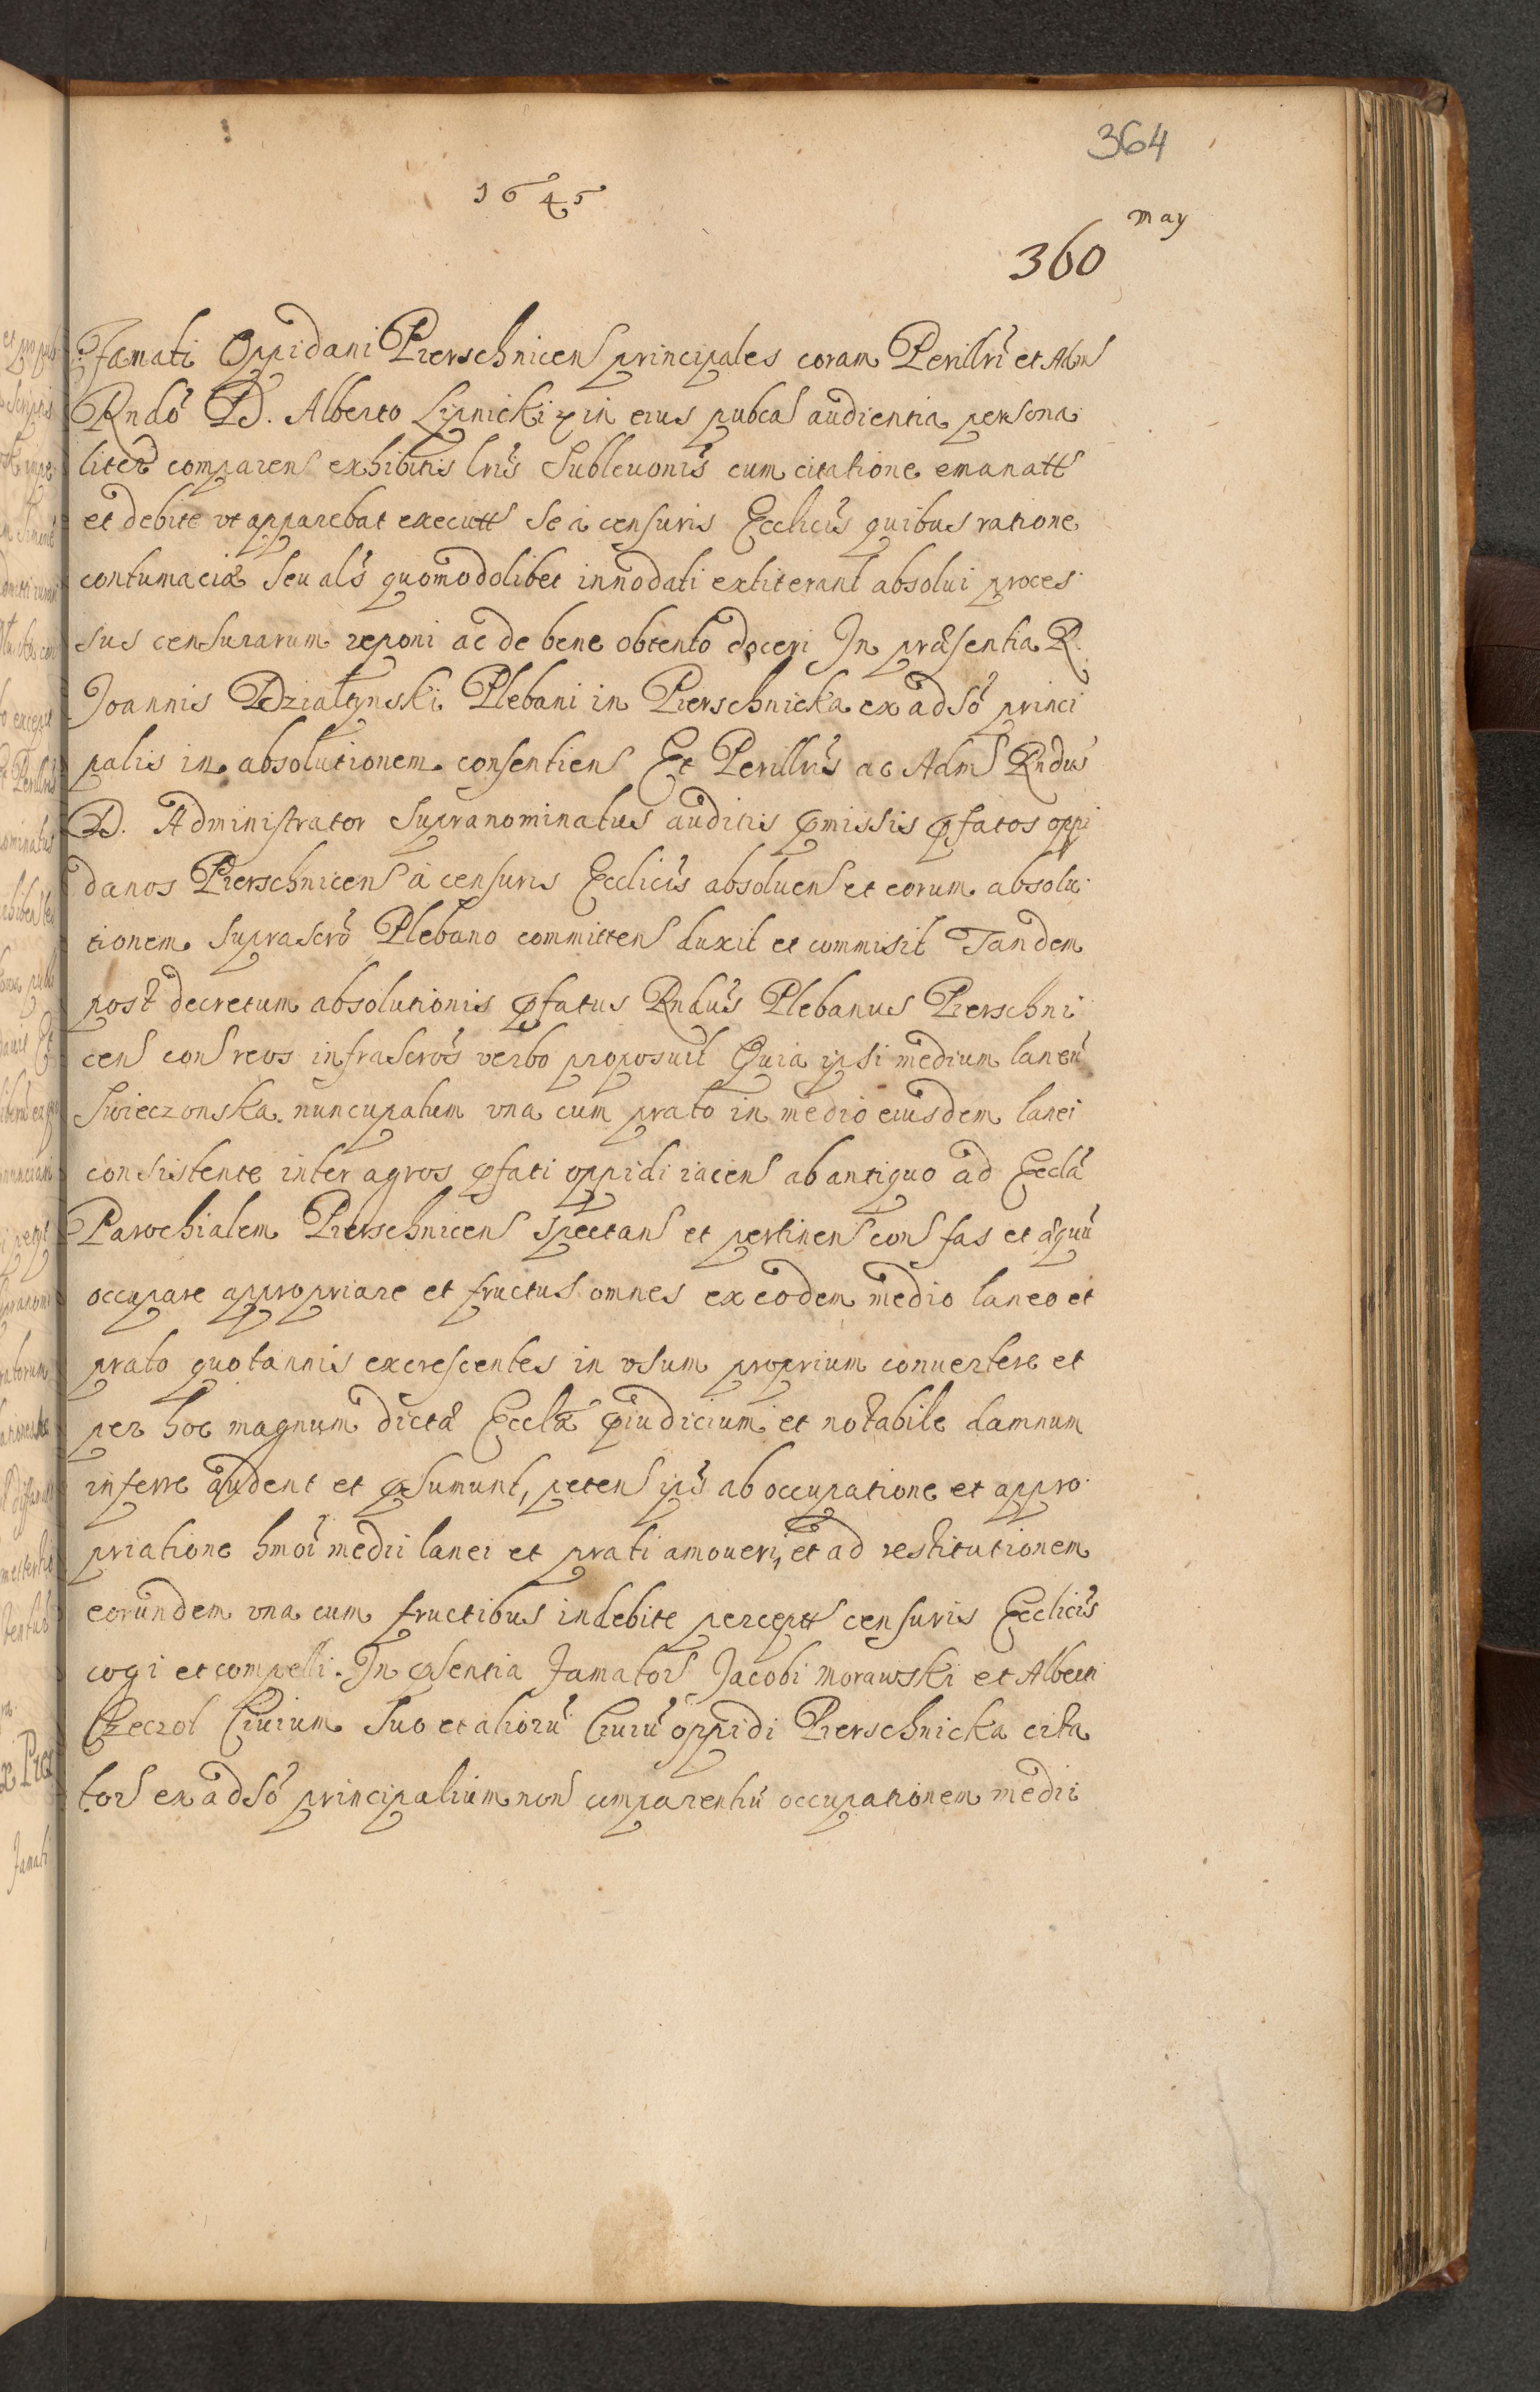 364
1645
may
360
Famati Oppidani Pierschnicens principales coram Perillri et Adm
Rndo D. Alberto Lipnicki in eius pubca audientia persona
liter comparens exhibitis lris Subleuonis cum citatione emanatt
et debite vt apparebat executt se a censuris Ecclicis quibus ratione
contumaciæ seu als quomodolibet innodati extiterant absolui proces
sus censurarum reponi ac de bene obtento doceri In præsentia R.
Joannis Działynski Plebani in Pierschnicka ex adso princi
palis in absolutionem consentiens Et Perillris ac Adm Rndus
D. Administrator supranominatus auditis pmissis pfatos oppi
danos Pierschnicens à censuris Ecclicis absoluens et eorum absolu
tionem suprascro Plebano committens duxit et commisit Tandem
post decretum absolutionis pfatus Rndus Plebanus Pierschni
cens cons reos infrascros verbo proposuit Quia ipsi medium laneu
Swieczonska nuncupatum vna cum prato in medio eiusdem lanei
consistente inter agros pfati oppidi iacens ab antiquo ad Eccla
Parochialem Pierschnicens spectans et pertinens cons fas et æquu
occupare appropriare et fructus omnes ex eodem medio laneo et
prato quotannis excrescentes in vsum proprium conuertere et
per hoc magnum dictæ Ecclæ piudicium et notabile damnum
inferre audent et psumunt, petens ips ab occupatione et appro
priatione hmoi medii lanei et prati amoueri, et ad restitutionem
eorundem vna cum fructibus indebite perceptt censuris Ecclicis
cogi et compelli. In psentia Famators Jacobi Morawski et Alberti
Czeczol Ciuium suo et alioru Ciuiu oppidi Pierschnicka cita
tors ex adso principalium nons comparentiu occupationem medii